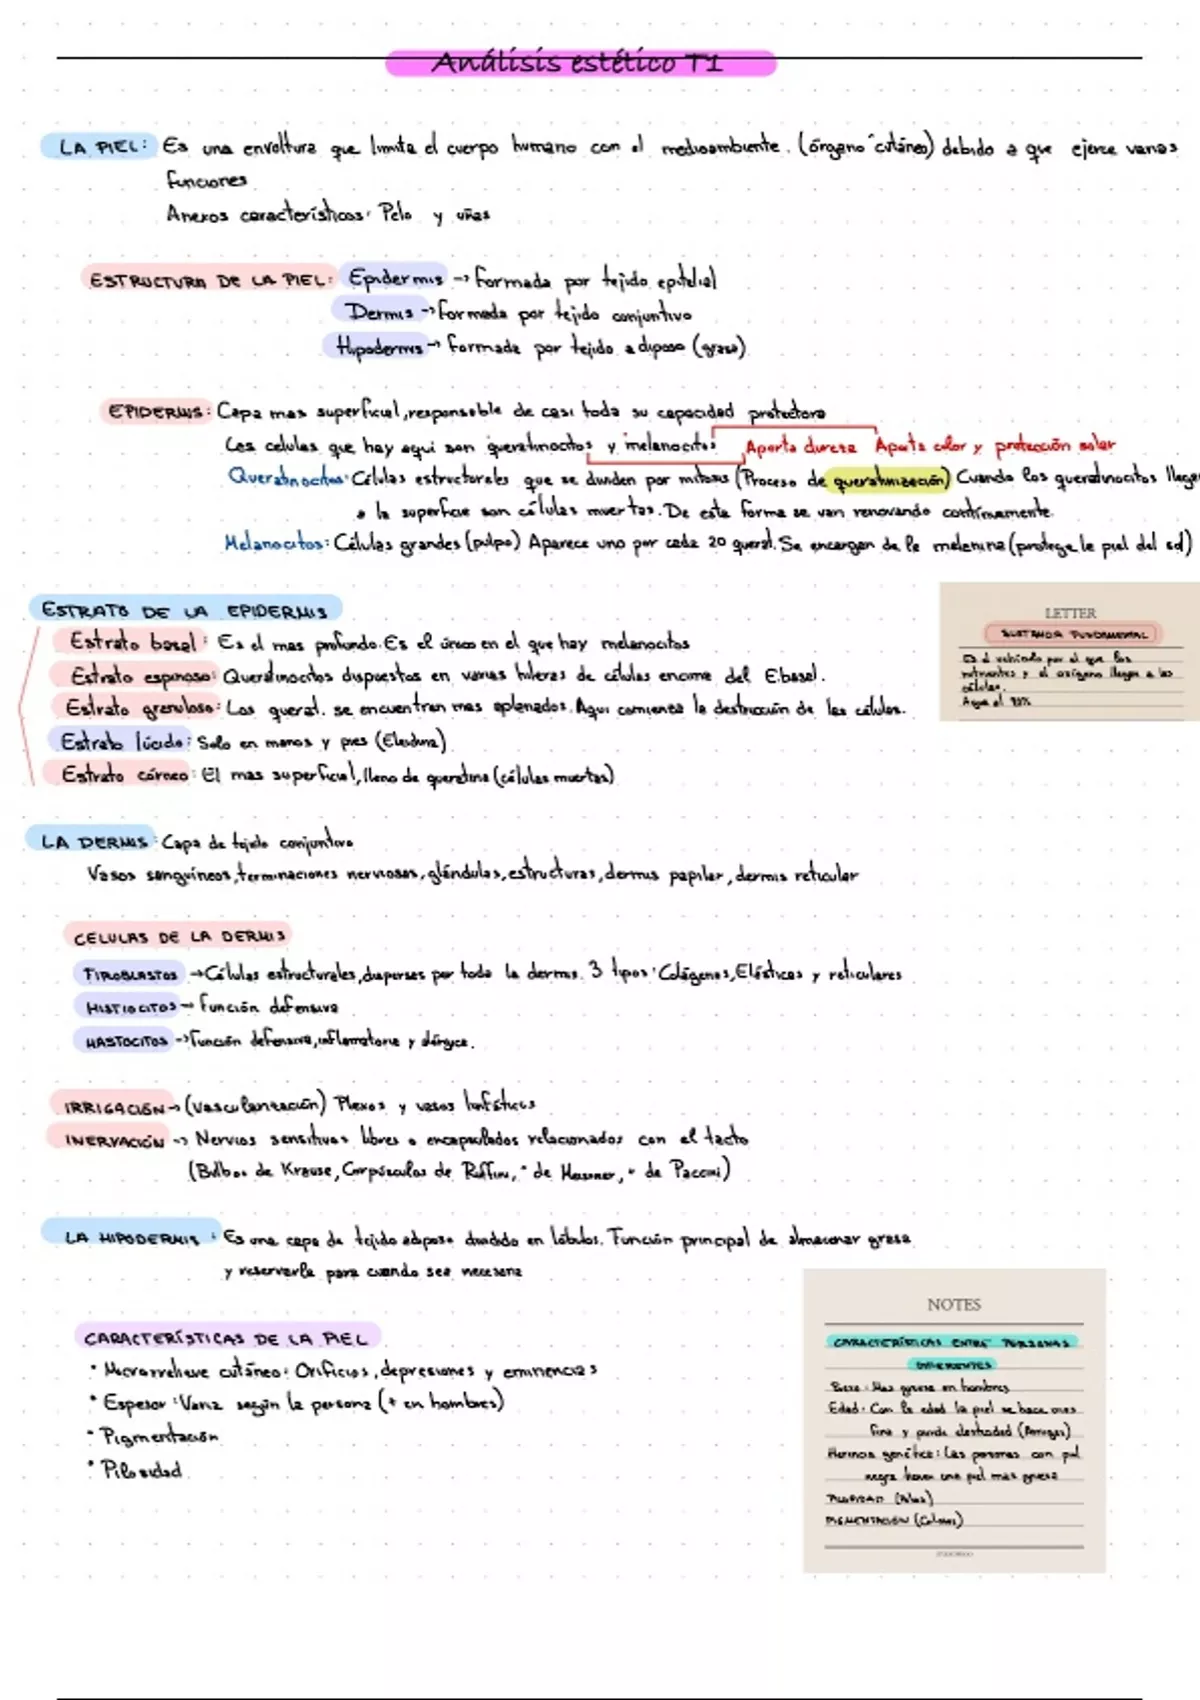 Análisis estético T1
LA PIEL: Es una envoltura que limita el cuerpo humano con el medioambiente. (órgano cutáneo) debido a que ejerce varias
funciones
Anexos característicos: Pelo y uñas
ESTRUCTURA DE LA PIEL: Epidermis → formada por tejido epitelial
Dermis → formada por tejido conjuntivo
Hipodermis → formada por tejido adiposo (grasa)
EPIDERMIS: Capa mas superficial, responsable de casi toda su capacidad protectora
Las celulas que hay aqui son queratinocitos y melanocitos Aporta dureza Aporta color y protección solar
Queratinocitos: Células estructurales que se dividen por mitosis (Proceso de queratinización) Cuando los queratinocitos llegan
a la superficie son células muertas. De esta forma se van renovando continuamente.
Melanocitos: Células grandes (pulpo) Aparece uno por cada 20 querat. Se encargan de la melanina (protege la piel del sol)
ESTRATO DE LA EPIDERMIS
Estrato basal: Es el mas profundo. Es el único en el que hay melanocitos
Estrato espinoso: Queratinocitos dispuestos en varias hileras de células encima del E.basal.
Estrato granuloso: Los querat. se encuentran mas aplanados. Aqui comienza la destrucción de las células.
Estrato lúcido: Solo en manos y pies (Eleidina)
Estrato córneo: El mas superficial, lleno de queratina (células muertas)
LETTER
SUSTANCIA FUNDAMENTAL
Es el vehículo por el que los
nutrientes y el oxígeno llegan a las
células.
Agua al 90%
LA DERMIS: Capa de tejido conjuntivo
Vasos sanguíneos, terminaciones nerviosas, glándulas, estructuras, dermis papilar, dermis reticular
CELULAS DE LA DERMIS
FIROBLASTOS → Células estructurales, dispersas por toda la dermis. 3 tipos: Colágenos, Elásticas y reticulares
HISTIOCITOS → función defensiva
MASTOCITOS → función defensiva, inflamatoria y alérgica.
IRRIGACIÓN → (vascularización) Plexos y vasos linfáticos
INERVACIÓN → Nervios sensitivos libres o encapsulados relacionados con el tacto
(Bulbos de Krause, Corpúsculos de Ruffini, " de Meissner, " de Paccini)
LA HIPODERMIS: Es una capa de tejido adiposo dividido en lóbulos. Función principal de almacenar grasa
y reservarla para cuando sea necesaria
CARACTERÍSTICAS DE LA PIEL
• Microrrelieve cutáneo: Orificios, depresiones y eminencias
• Espesor: Varia según la persona (+ en hombres)
• Pigmentación
• Pilosidad
NOTES
CARACTERÍSTICAS ENTRE PERSONAS
DIFERENTES
Mas gruesa en hombres
Edad: Con la edad la piel se hace mas
fina y pierde elasticidad (Arrugas)
Herencia genética: Las personas con piel
negra tienen una piel mas gruesa
PILOSIDAD (Pelos)
PIGMENTACIÓN (Colores)